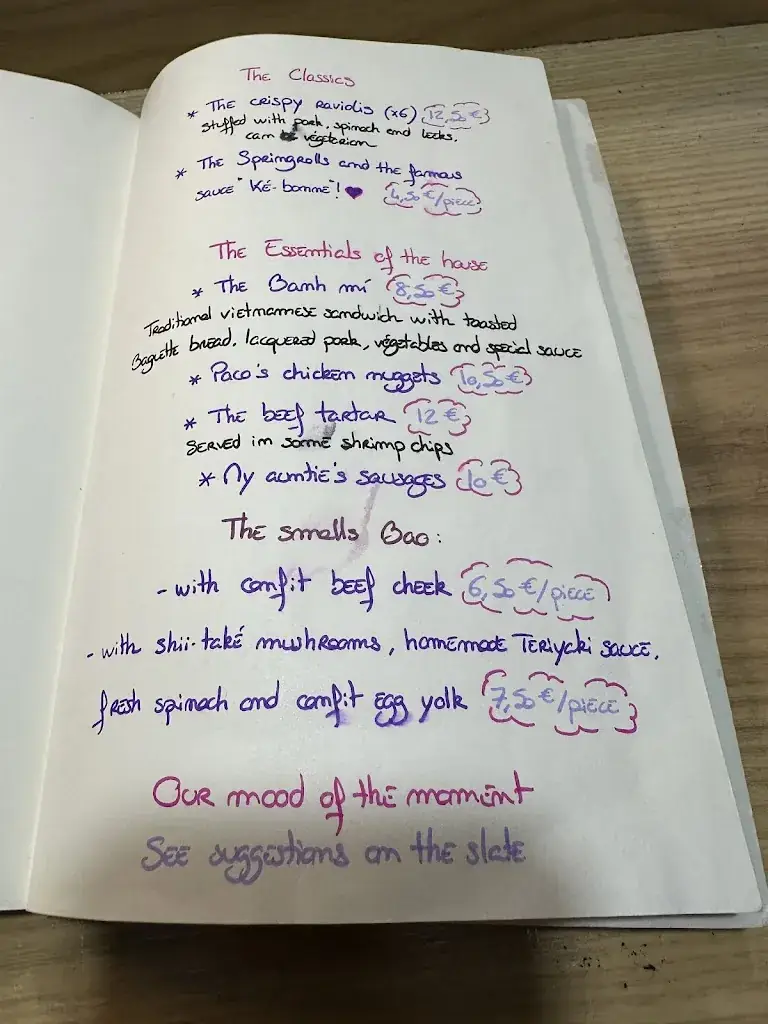 The Classics
* The crispy raviolis (x6) 12,50€
stuffed with pork, spinach and leeks.
can be végétarian
* The Springrolls and the famous
sauce "Ké-bonne"! ♥ 4,50€/pièce
The Essentials of the house
* The Banh mí 8,50€
Traditional vietnamese sandwich with toasted
Baguette bread, lacquered pork, végétables and special sauce
* Paco's chicken nuggets 10,50€
* The beef tartar 12€
SERVED in some shrimp chips
* My auntie's sausages 10€
The smalls Bao:
- with confit beef cheek 6,50€/pièce
- with shii-také mushrooms, homemade Teriyaki sauce,
fresh spinach and confit egg yolk 7,50€/pièce
Our mood of the moment
See suggestions on the slate